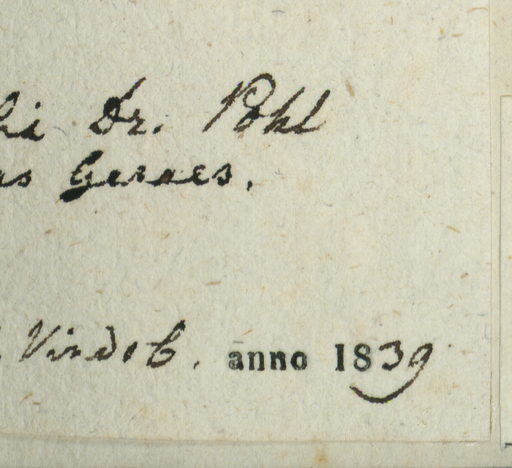 Dr. Pohl
as Geraes.
Vindob. anno 1839